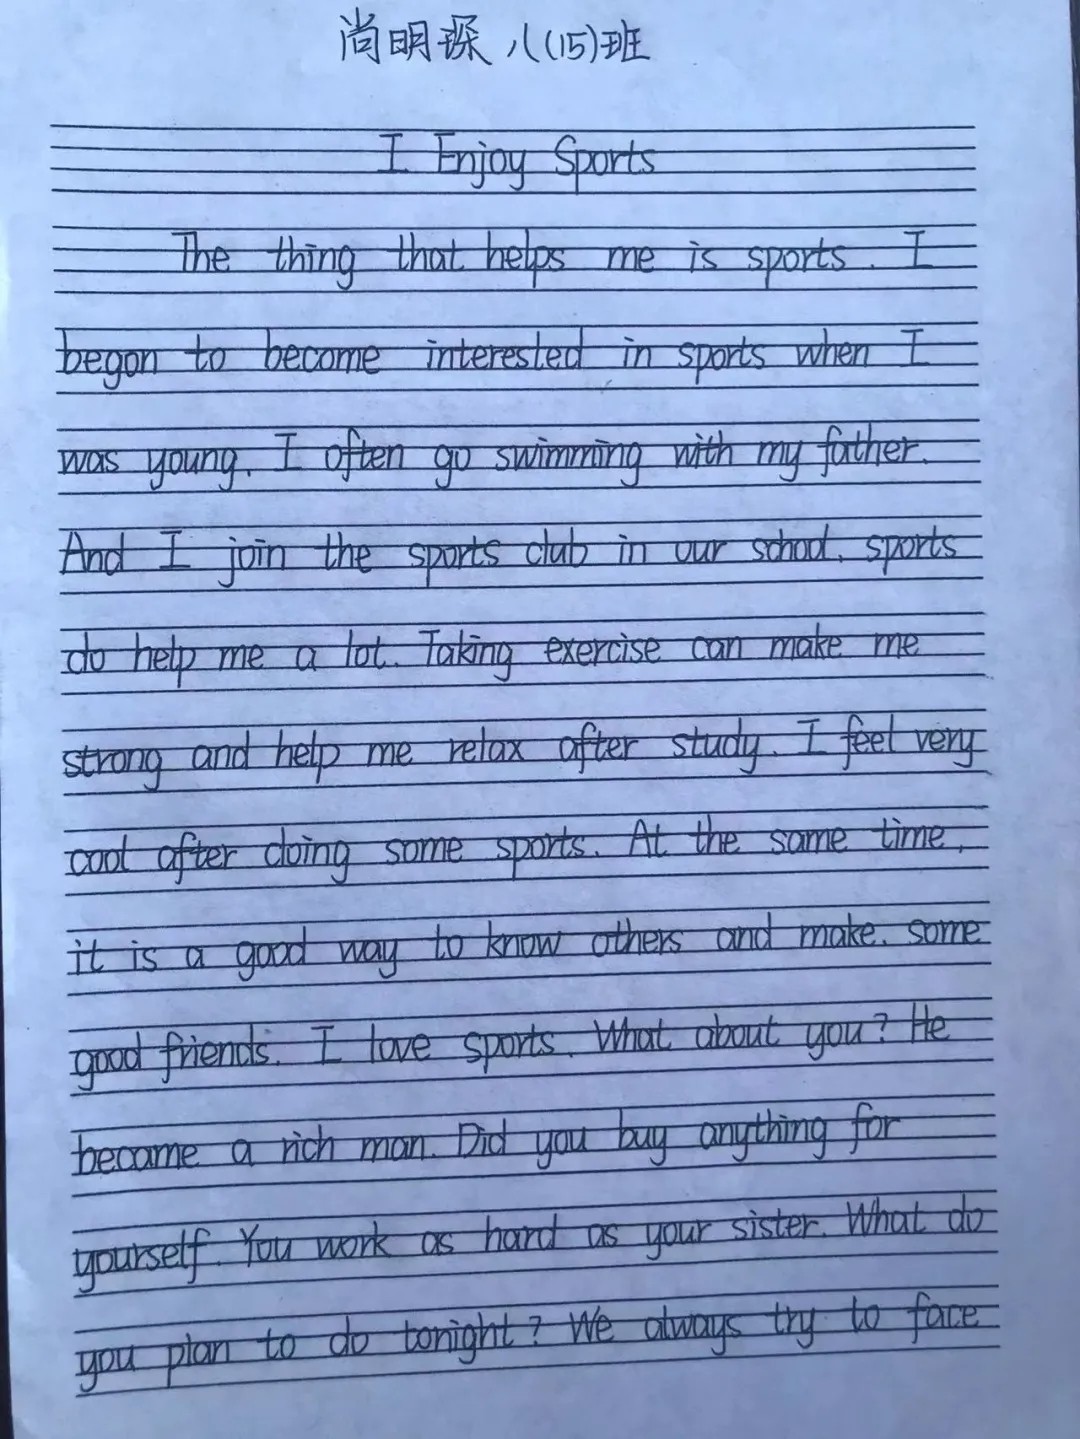 尚明琛 八(15)班
I Enjoy Sports
The thing that helps me is sports. I
began to become interested in sports when I
was young. I often go swimming with my father.
And I join the sports club in our school. sports
do help me a lot. Taking exercise can make me
strong and help me relax after study. I feel very
cool after doing some sports. At the same time,
it is a good way to know others and make. some
good friends. I love sports. What about you? He
became a rich man. Did you buy anything for
yourself. You work as hard as your sister. What do
you plan to do tonight? We always try to face